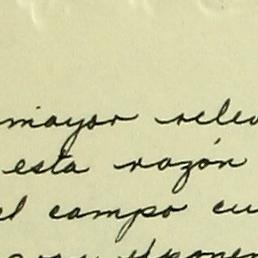 mayor relev
esta razón
el campo cu